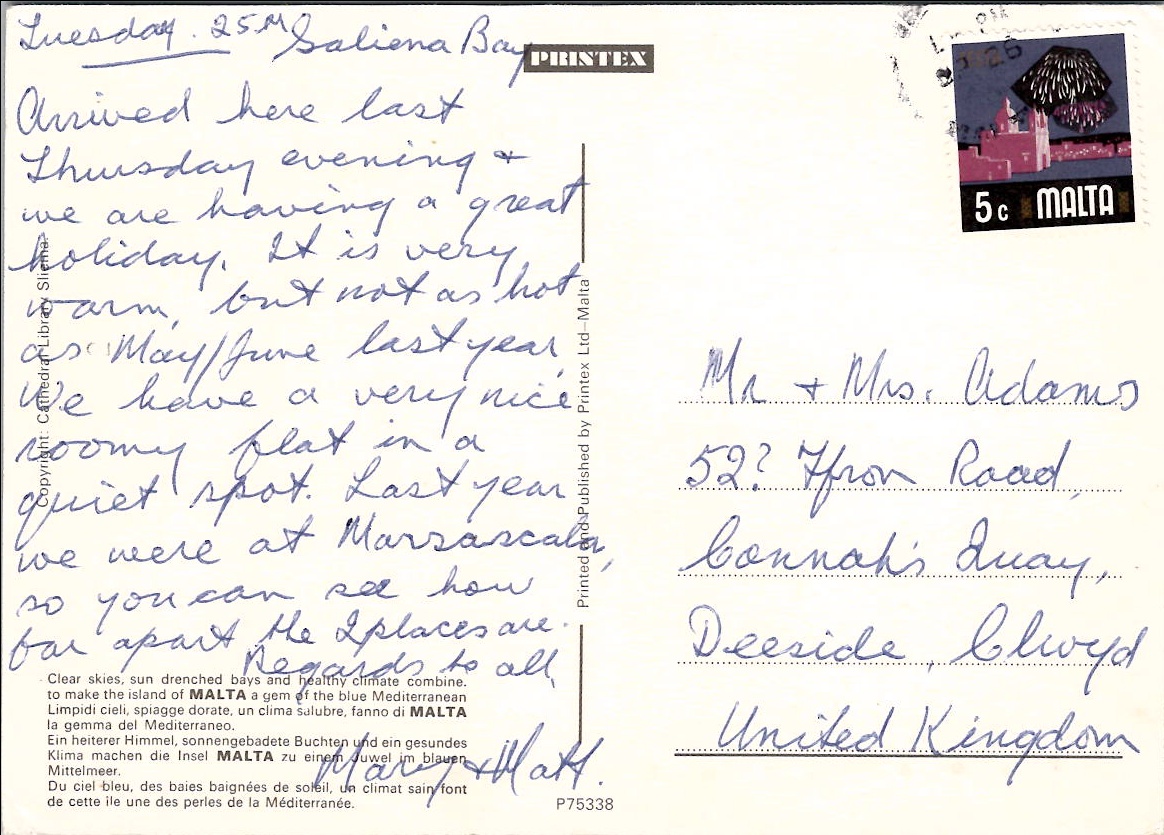 Tuesday. 25th Saliena Bay
PRINTEX
Arrived here last
Thursday evening +
we are having a great
holiday. It is very
warm, but not as hot
as May/June last year.
We have a very nice
roomy flat in a
quiet spot. Last year
we were at Marsascala,
so you can see how
far apart the 2 places are.
Regards to all,
Mary + Matt.
Clear skies, sun drenched bays and healthy climate combine.
to make the island of MALTA a gem of the blue Mediterranean
Limpidi cieli, spiagge dorate, un clima salubre, fanno di MALTA
la gemma del Mediterraneo.
Ein heiterer Himmel, sonnengebadete Buchten und ein gesundes
Klima machen die Insel MALTA zu einem Juwel im blauen
Mittelmeer.
Du ciel bleu, des baies baignées de soleil, un climat sain font
de cette île une des perles de la Méditerranée.
Copyright: Cathedral Library Sliema.
Printed and Published by Printex Ltd–Malta
P75338
5c MALTA
Mr + Mrs. Adams
52? Ffron Road,
Connah's Quay,
Deeside, Clwyd
United Kingdom